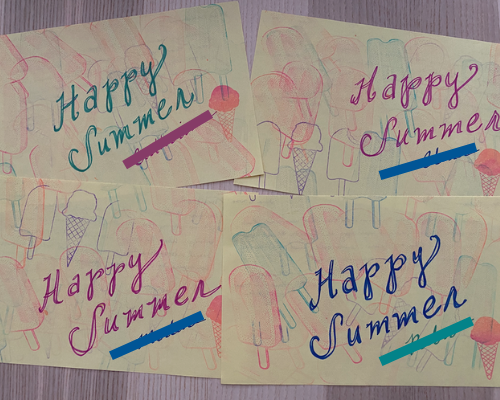 Happy
Summer
Happy
Summer
Happy
Summer
Happy
Summer